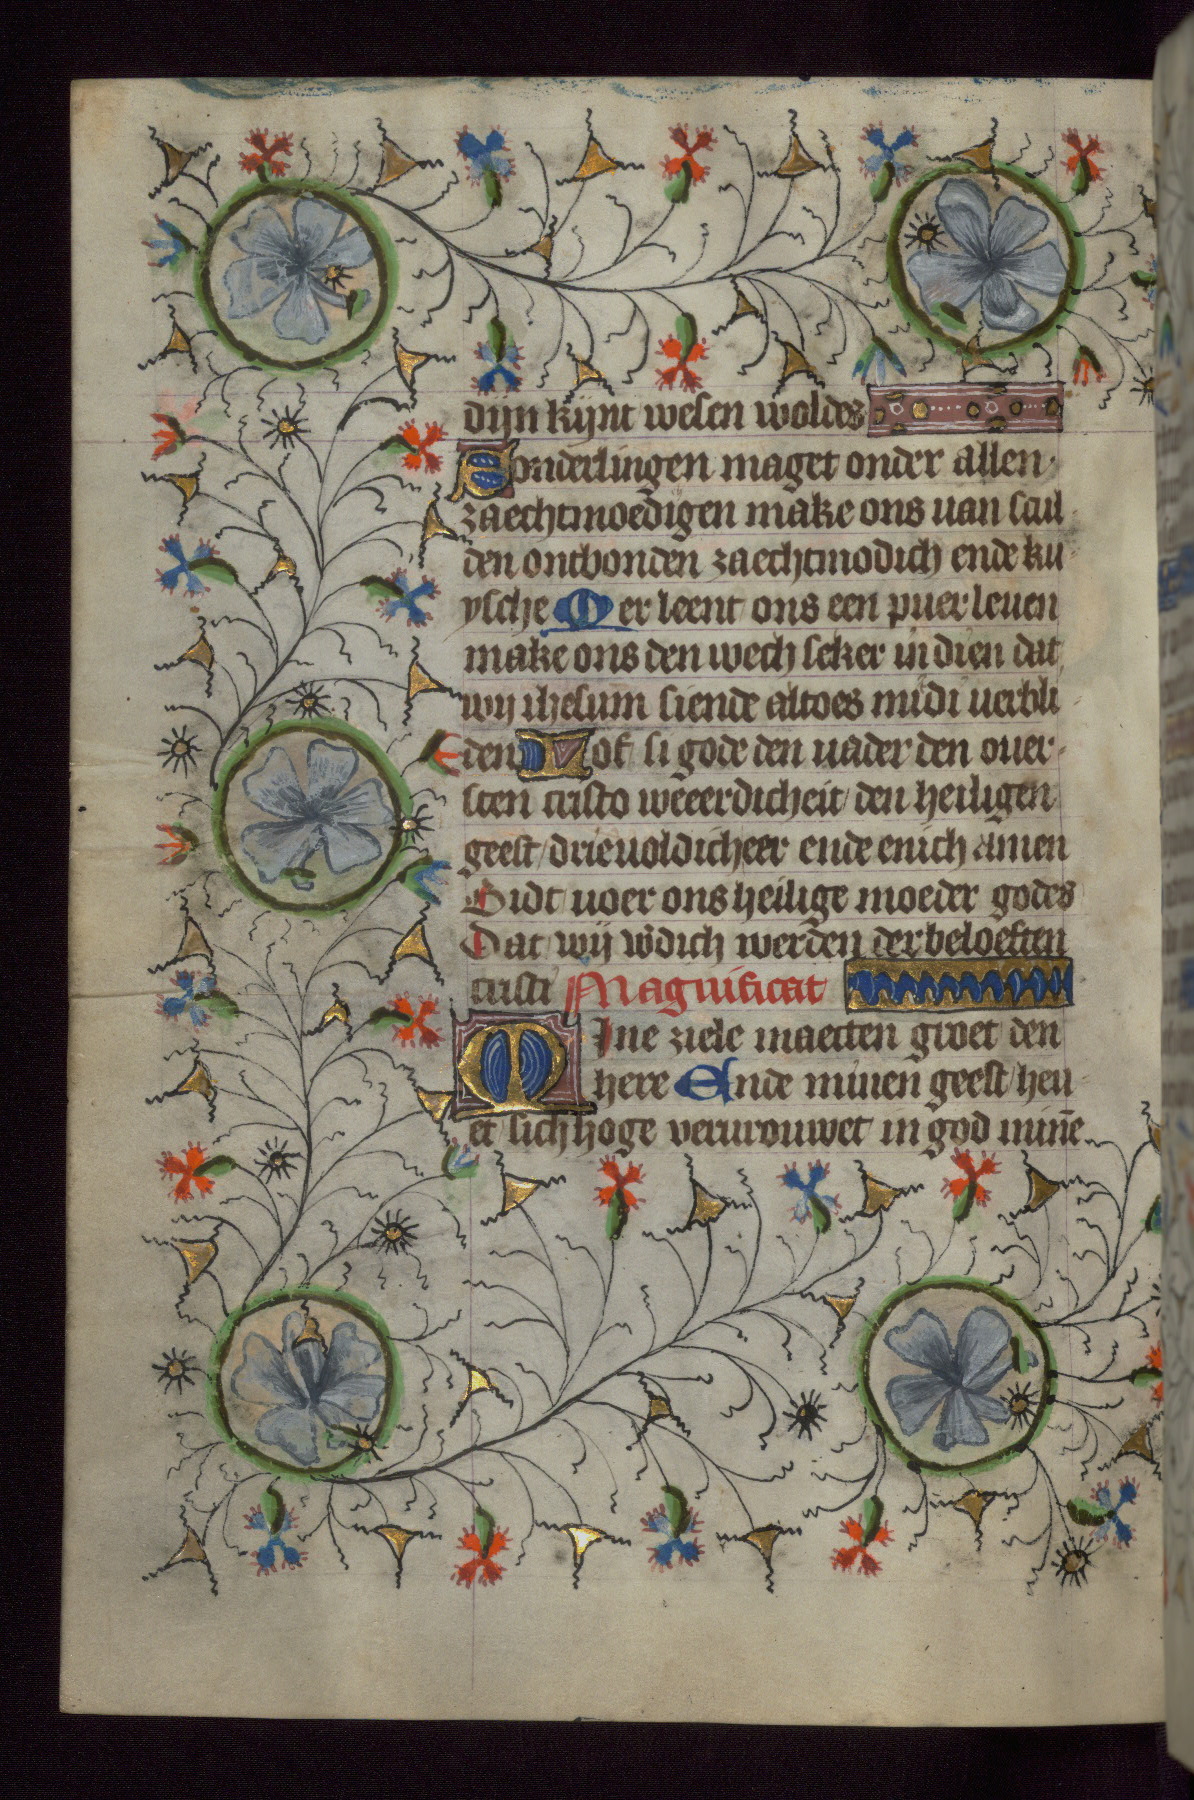 dijn kijnt wesen woldes
Sonderlingen maget onder allen
zaechtmoedigen make ons uan scul
den ontbonden zaechtmodich ende ku
ysche Uerleent ons een puer leuen
make ons den wech seker in dien dat
wij ihesum siende altoes midi uerbli
den Lof si gode den uader den ouer
sten cristo weeerdicheit den heiligen
geest drieuoldicheer ende enich amen
Bidt uoer ons heilige moeder godes
Dat wij wdich werden der beloeften
cristi Magnificat
Mine ziele maecten groet den
here Ende minen geest heu
et sich hoge veruroüwet in god mine